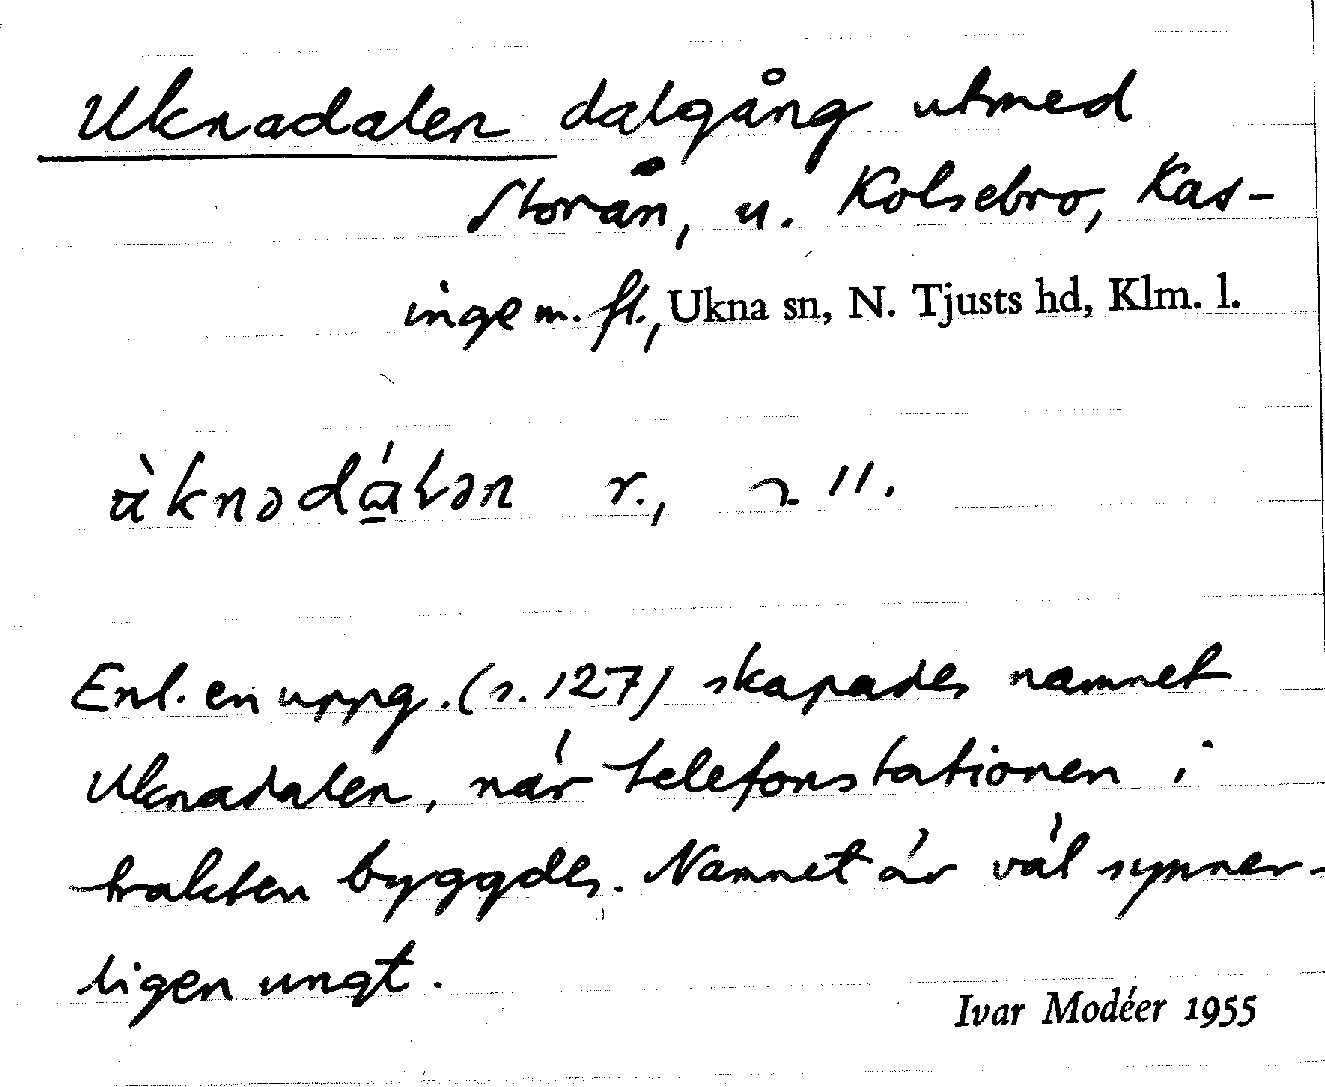 Uknadalen dalgång utmed
Storån, u. Kolsebro, Kas-
inge m. fl., Ukna sn, N. Tjusts hd, Klm. l.
r., 11.
Enl. en uppg. (s. 127) skapades namnet
Uknadalen, när telefonstationen i
trakten byggdes. Namnet är väl synner-
ligen ungt.
Ivar Modéer 1955